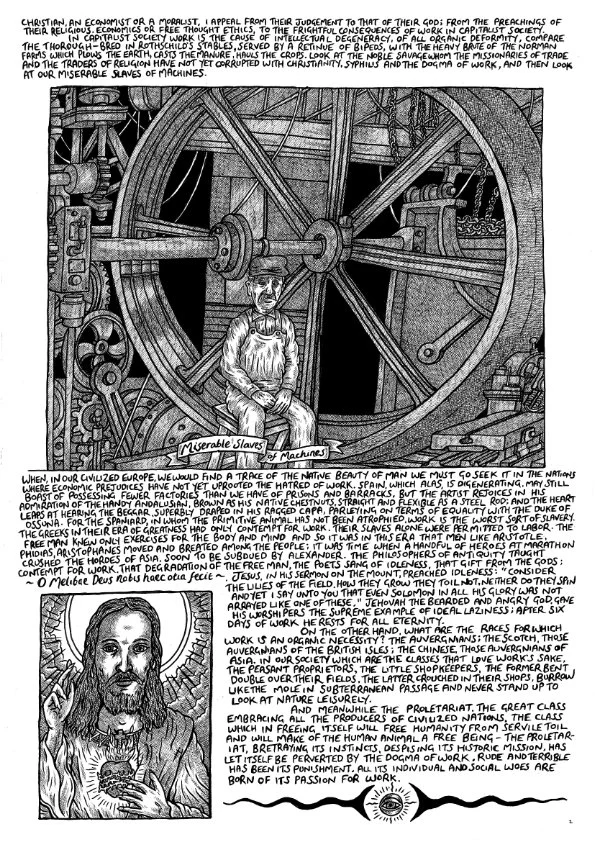 CHRISTIAN, AN ECONOMIST OR A MORALIST, I APPEAL FROM THEIR JUDGEMENT TO THAT OF THEIR GOD; FROM THE PREACHINGS OF
THEIR RELIGIOUS. ECONOMICS OR FREE THOUGHT ETHICS, TO THE FRIGHTFUL CONSEQUENCES OF WORK IN CAPITALIST SOCIETY.
IN CAPITALIST SOCIETY WORK IS THE CAUSE OF INTELLECTUAL DEGENERACY, OF ALL ORGANIC DEFORMITY, COMPARE
THE THOROUGH-BRED IN ROTHSCHILD'S STABLES, SERVED BY A RETINUE OF BIPEDS, WITH THE HEAVY BRUTE OF THE NORMAN
FARMS WHICH PLOWS THE EARTH, CARTS THE MANURE, HAULS THE CROPS. LOOK AT THE NOBLE SAVAGE WHOM THE MISSIONARIES OF TRADE
AND THE TRADERS OF RELIGION HAVE NOT YET CORRUPTED WITH CHRISTIANITY, SYPHILIS AND THE DOGMA OF WORK, AND THEN LOOK
AT OUR MISERABLE SLAVES OF MACHINES.
Miserable Slaves
of Machines
WHEN, IN OUR CIVILIZED EUROPE, WE WOULD FIND A TRACE OF THE NATIVE BEAUTY OF MAN WE MUST GO SEEK IT IN THE NATIONS
WHERE ECONOMIC PREJUDICES HAVE NOT YET UPROOTED THE HATRED OF WORK. SPAIN, WHICH ALAS, IS DIGENERATING, MAY STILL
BOAST OF POSSESSING FEWER FACTORIES THAN WE HAVE OF PRISONS AND BARRACKS, BUT THE ARTIST REJOICES IN HIS
ADMIRATION OF THE HANDY ANDALUSIAN, BROWN AS HIS NATIVE CHESTNUTS, STRAIGHT AND FLEXIBLE AS A STEEL ROD; AND THE HEART
LEAPS AT HEARING THE BEGGAR, SUPERBLY DRAPED IN HIS RAGGED CAPA, PARLEYING ON TERMS OF EQUALITY WITH THE DUKE OF
OSSUNA. FOR THE SPANIARD, IN WHOM THE PRIMITIVE ANIMAL HAS NOT BEEN ATROPHIED, WORK IS THE WORST SORT OF SLAVERY.
THE GREEKS IN THEIR ERA OF GREATNESS HAD ONLY CONTEMPT FOR WORK. THEIR SLAVES ALONE WERE PERMITTED TO LABOR. THE
FREE MAN KNEW ONLY EXERCISES FOR THE BODY AND MIND AND SO IT WAS IN THIS ERA THAT MEN LIKE ARISTOTLE.
PHIDIAS, ARISTOPHANES MOVED AND BREATED AMONG THE PEOPLE; IT WAS TIME WHEN A HANDFUL OF HEROES AT MARATHON
CRUSHED THE HORDES OF ASIA, SOON TO BE SUBDUED BY ALEXANDER. THE PHILOSOPHERS OF ANTIQUITY TAUGHT
CONTEMPT FOR WORK, THAT DEGRADATION OF THE FREE MAN, THE POETS SANG OF IDLENESS, THAT GIFT FROM THE GODS:
~ O Melibæ Deus nobis hæc otia fecit ~.
JESUS, IN HIS SERMON ON THE MOUNT, PREACHED IDLENESS: "CONSIDER
THE LILIES OF THE FIELD, HOW THEY GROW THEY TOIL NOT, NEITHER DO THEY SPIN
AND YET I SAY UNTO YOU THAT EVEN SOLOMON IN ALL HIS GLORY WAS NOT
ARRAYED LIKE ONE OF THESE," JEHOVAH THE BEARDED AND ANGRY GOD, GAVE
HIS WORSHIPERS THE SUPREME EXAMPLE OF IDEAL LAZINESS; AFTER SIX
DAYS OF WORK HE RESTS FOR ALL ETERNITY.
ON THE OTHER HAND, WHAT ARE THE RACES FOR WHICH
WORK IS AN ORGANIC NECESSITY? THE AUVERGNIANS; THE SCOTCH, THOSE
AUVERGNIANS OF THE BRITISH ISLES; THE CHINESE, THOSE AUVERGNIANS OF
ASIA. IN OUR SOCIETY WHICH ARE THE CLASSES THAT LOVE WORK'S SAKE,
THE PEASANT PROPRIETORS, THE LITTLE SHOPKEEPERS, THE FORMER BENT
DOUBLE OVER THEIR FIELDS, THE LATTER CROUCHED IN THEIR SHOPS, BURROW
LIKE THE MOLE IN SUBTERRANEAN PASSAGE AND NEVER STAND UP TO
LOOK AT NATURE LEISURELY.
AND MEANWHILE THE PROLETARIAT, THE GREAT CLASS
EMBRACING ALL THE PRODUCERS OF CIVILIZED NATIONS, THE CLASS
WHICH IN FREEING ITSELF WILL FREE HUMANITY FROM SERVILE TOIL
AND WILL MAKE OF THE HUMAN ANIMAL A FREE BEING - THE PROLETAR-
IAT, BRETRAYING ITS INSTINCTS, DESPISING ITS HISTORIC MISSION, HAS
LET ITSELF BE PERVERTED BY THE DOGMA OF WORK, RUDE AND TERRIBLE
HAS BEEN ITS PUNISHMENT. ALL ITS INDIVIDUAL AND SOCIAL WOES ARE
BORN OF ITS PASSION FOR WORK.